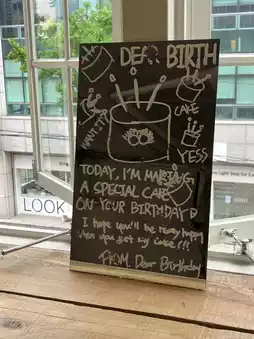 DEAR BIRTH
CAKE
WANT IT
YESS
TODAY, I'M MAKING
A SPECIAL CAKE
ON YOUR BIRTHDAY :D
I hope you'll be really happy
when you get my cake!!!
FROM. Dear Birthday
LOOK